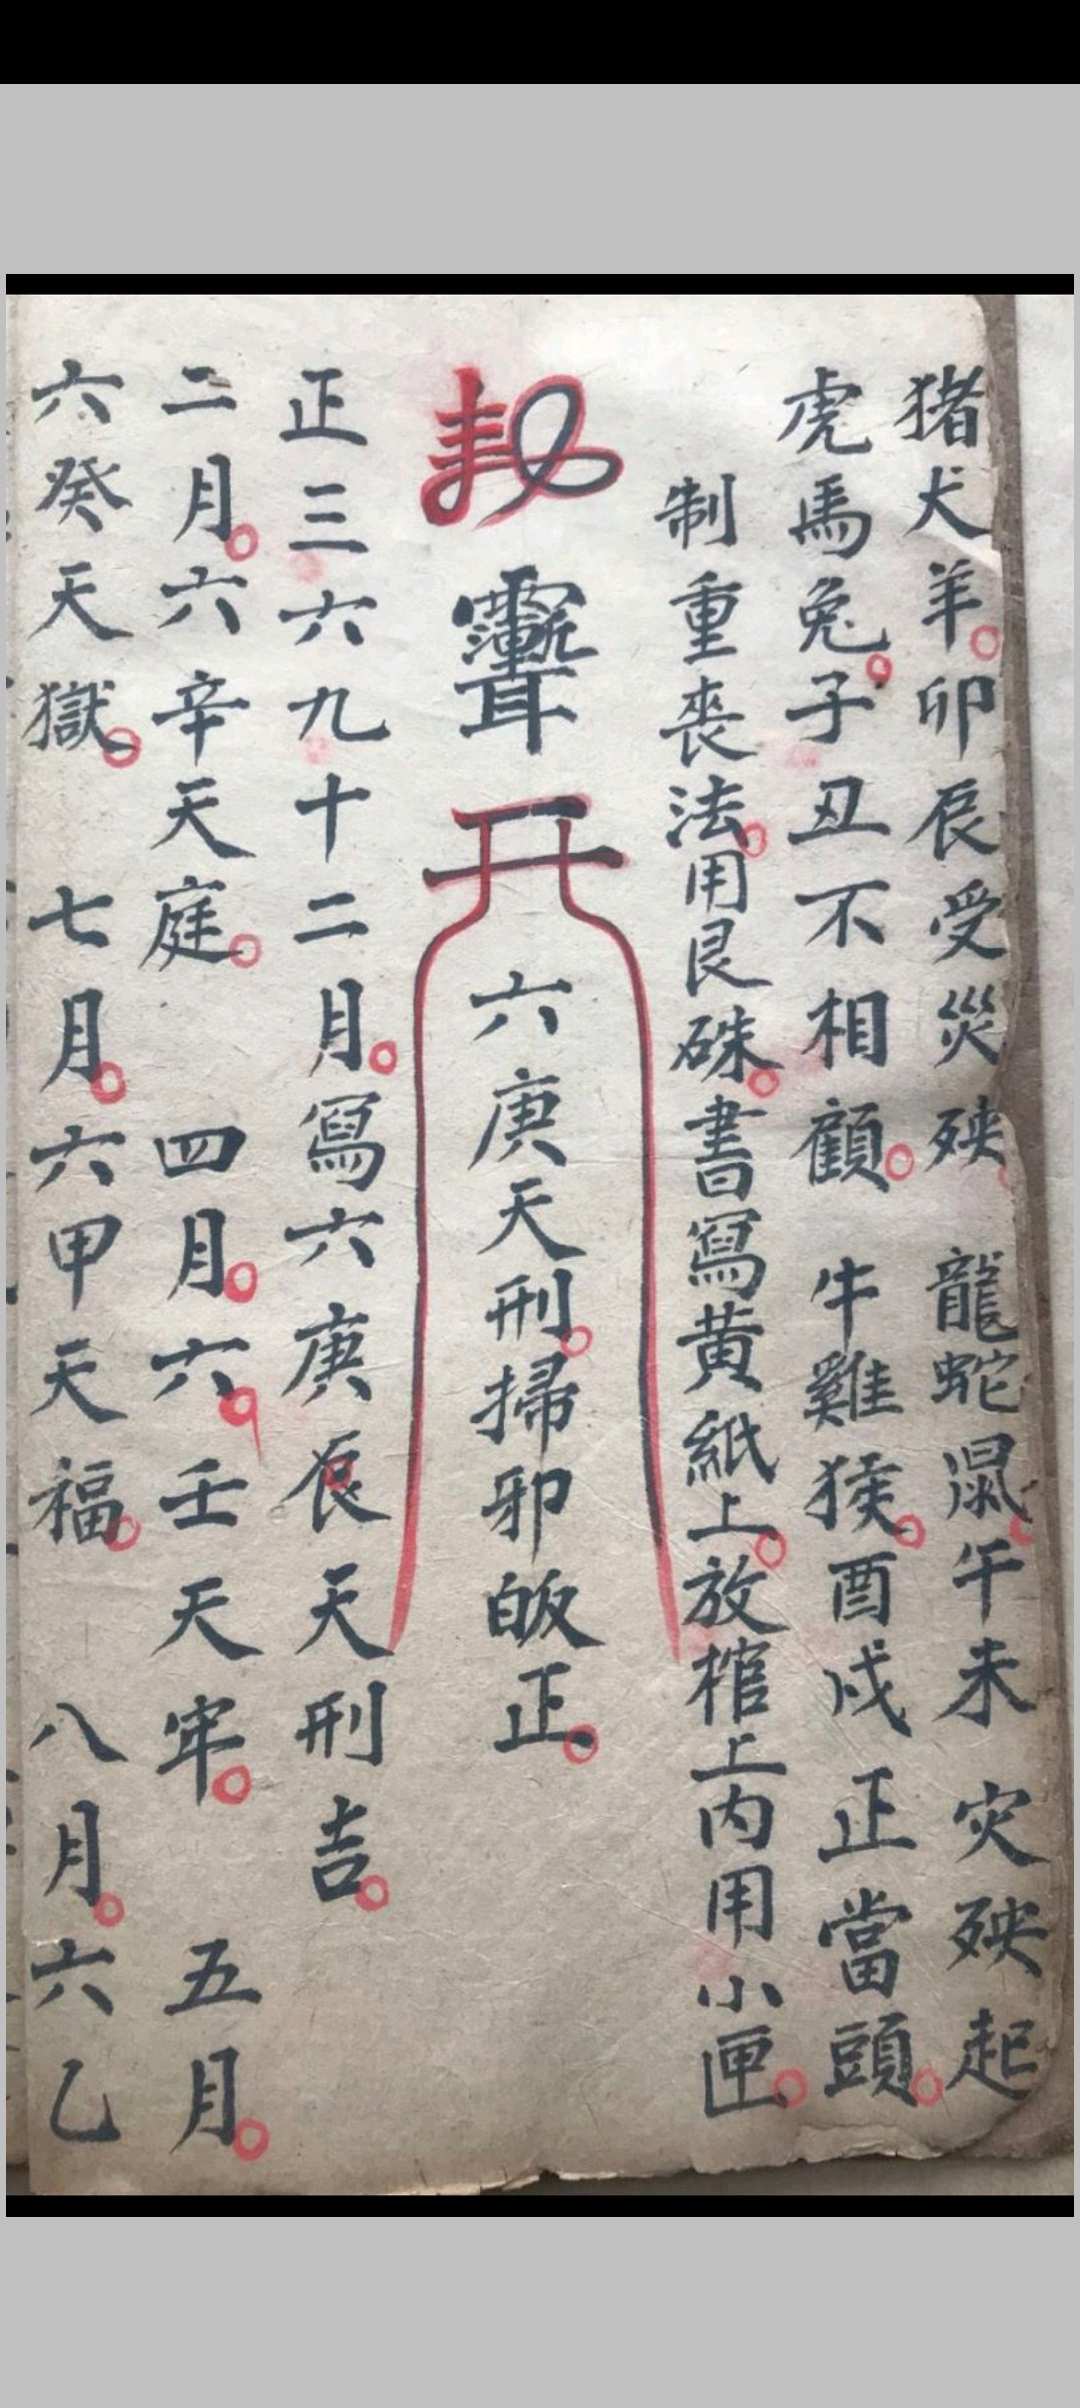 猪犬羊卯辰受災殃 龍蛇鼠午未灾殃起
虎馬兔子丑不相顧 牛雞猴酉戌正當頭
制重喪法用艮硃書寫黃紙上放棺上内用小匣
六庚天刑掃邪皈正
正三六九十二月寫六庚辰天刑吉
二月六辛天庭 四月六壬天牢 五月
六癸天獄 七月六甲天福 八月六乙